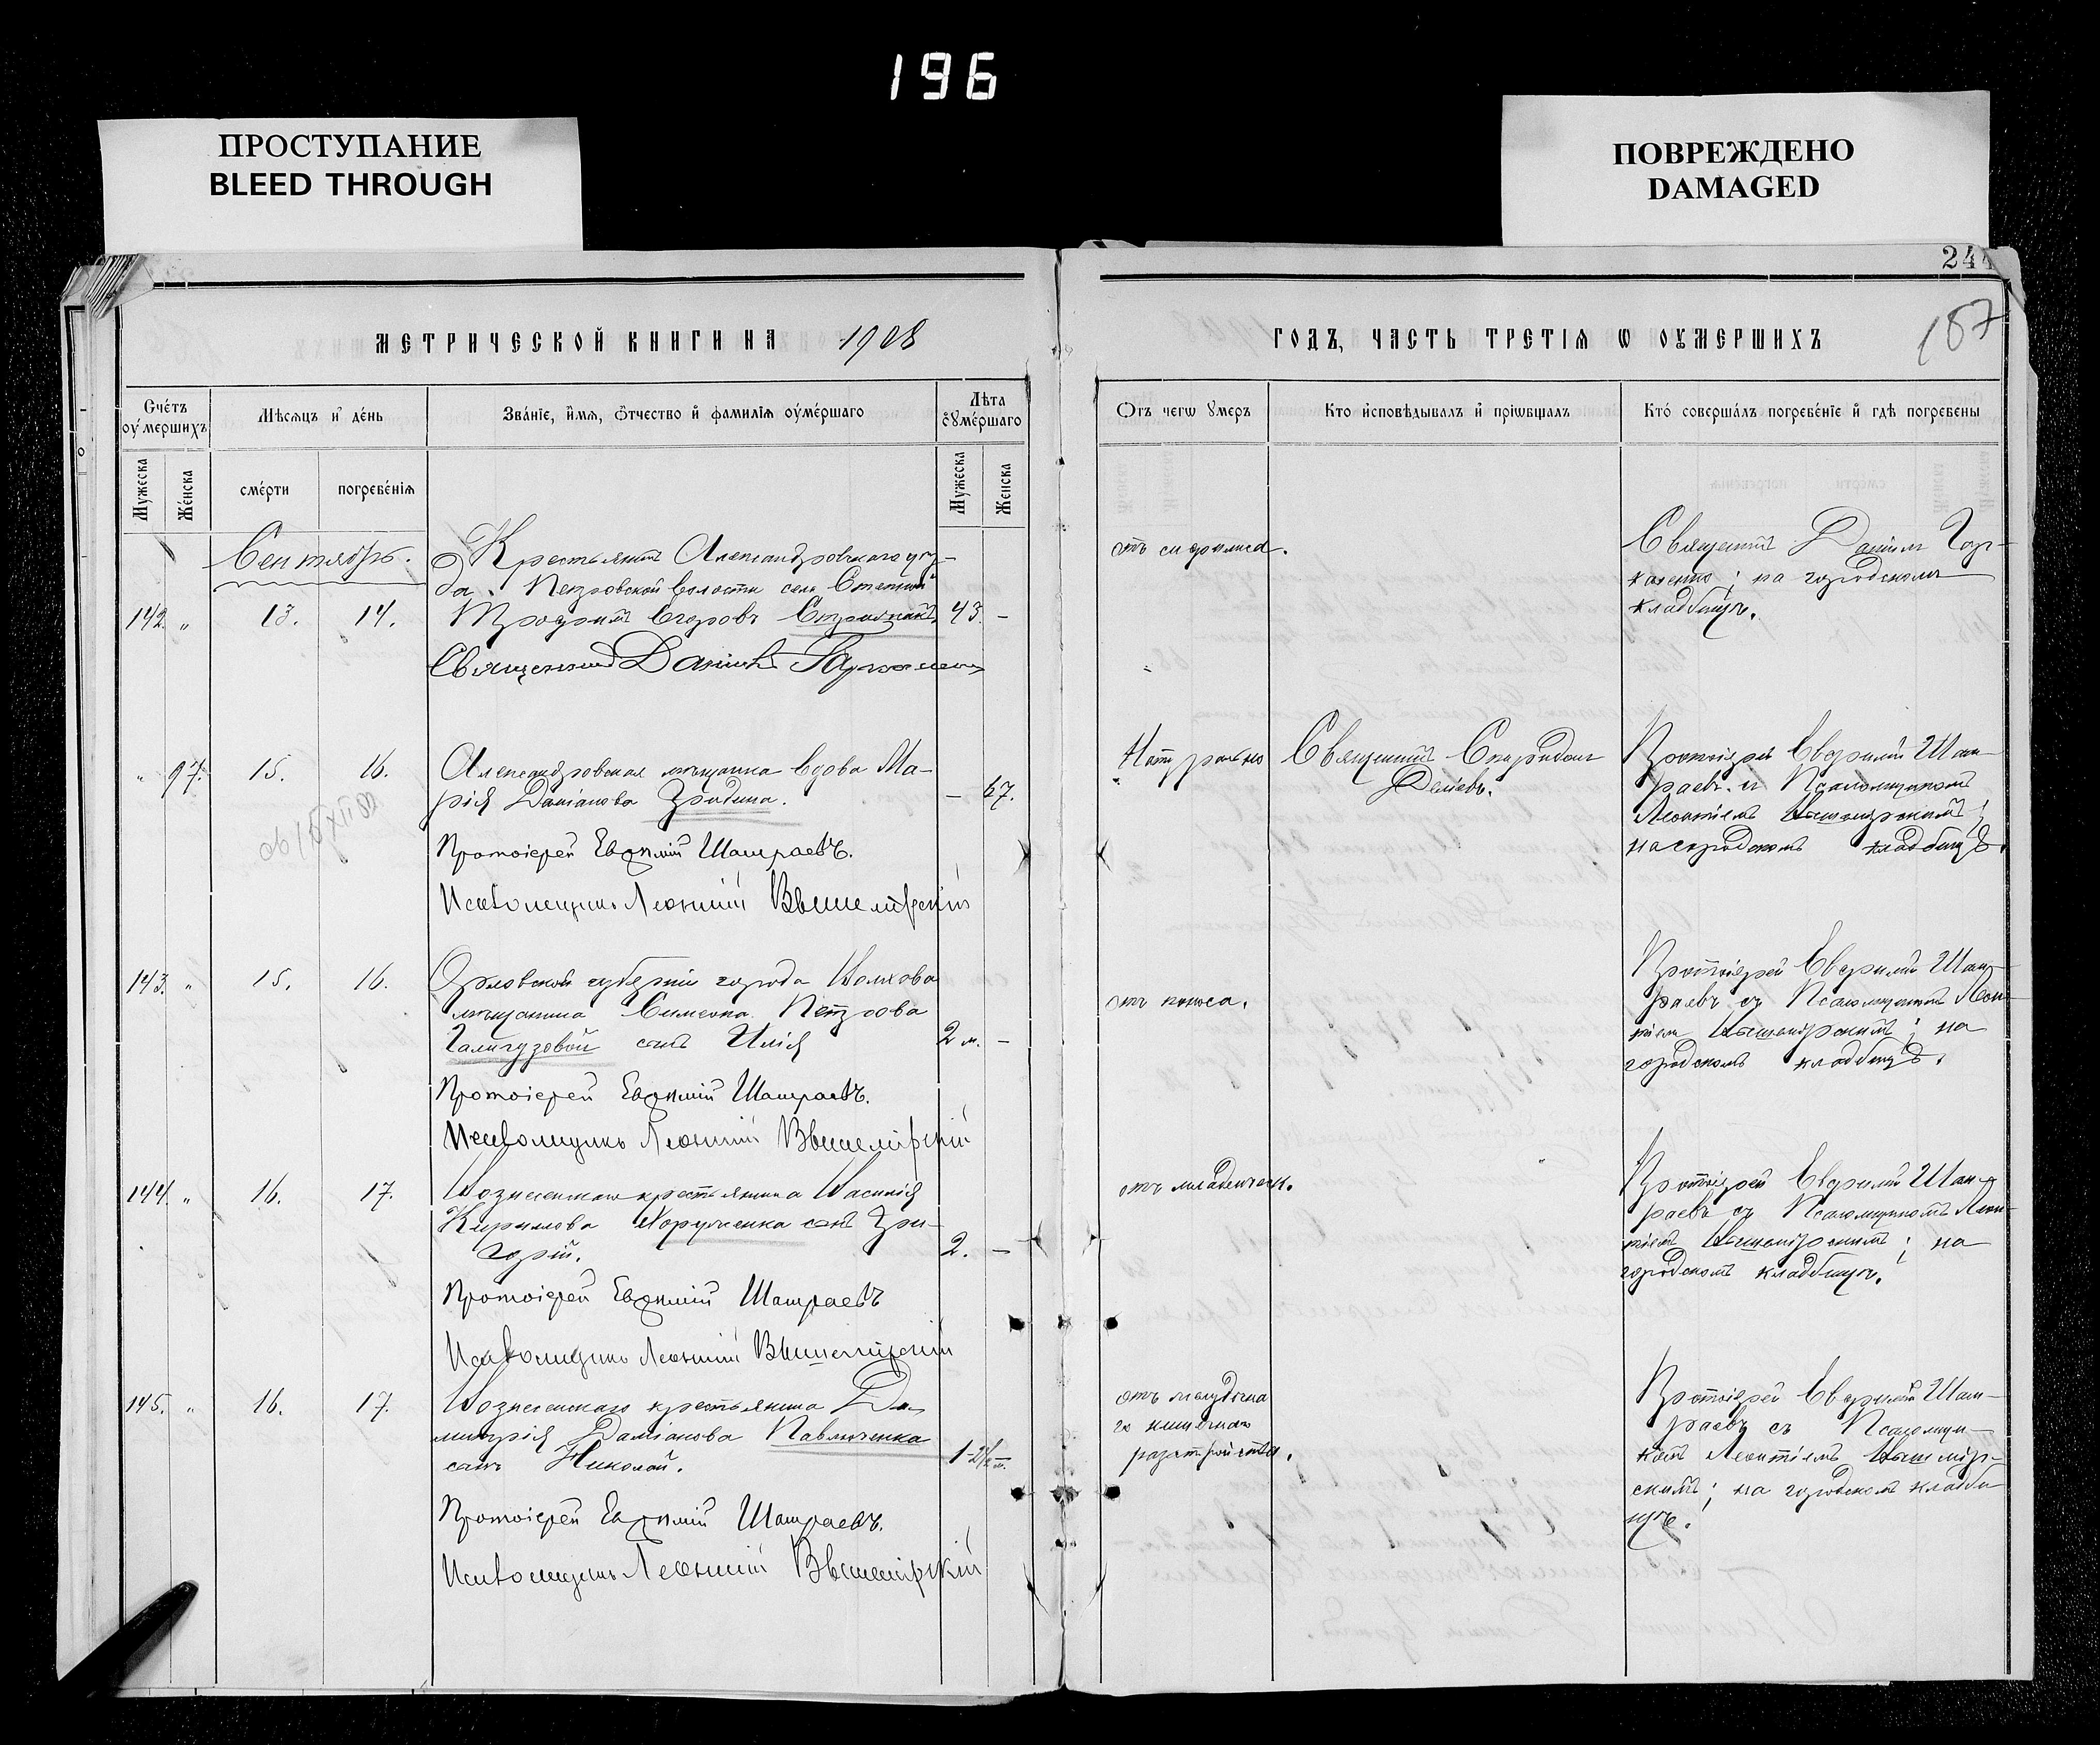 196
ПРОСТУПАНИЕ
BLEED THROUGH
ПОВРЕЖДЕНО
DAMAGED
244
187
МЕТРИЧЕСКОЙ КНИГИ НА 1908
ГОДЪ, ЧАСТЬ ТРЕТІѦ Ѡ ОУМЕРШИХЪ
Счетъ оумершихъ
Мѣсяцъ и день
Званіе, имя, отчество и фамилія оумершаго
Лѣта оумершаго
Мужеска
Женска
смерти
погребенія
Мужеска
Женска
Отъ чегω умеръ
Кто исповѣдывалъ и пріωбщалъ
Кто совершалъ погребеніе и гдѣ погребены
Сентябрь.
Крестьянинъ Александровскаго уѣз-
да, Петровской волости села
142. " 13. 14. Трофимъ Егоровъ 43. -
Священникъ Даніилъ
отъ сифилиса.
Священникъ Даніилъ Гор-
; на городскомъ
кладбищѣ.
" 97. 15. 16. Александровская мѣщанка вдова Ма-
рія Даміанова - 67.
Протоіерей Евфимій Шамраевъ.
Псаломщикъ Леонтій Вышемірскій
Натурально
Священникъ Спиридонъ
Протоіерей Евфимій Шам-
раевъ и Псаломщикомъ
Леонтіемъ Вышемірскимъ;
на городскомъ кладбищѣ.
143. " 15. 16. Орловской губерніи города Волхова
мѣщанина Симеона Петрова
Галигузовой сынъ Илія 2 м. -
Протоіерей Евфимій Шамраевъ.
Псаломщикъ Леонтій Вышемірскій
отъ поноса.
Протоіерей Евфимій Шам-
раевъ съ Псаломщикомъ Леон-
тіемъ Вышемірскимъ; на
городскомъ кладбищѣ.
144. " 16. 17. Вознесенскаго крестьянина Василія
Кирилова сынъ Гри-
горій. 2. -
Протоіерей Евфимій Шамраевъ
Псаломщикъ Леонтій Вышемірскій
отъ младенческ.
Протоіерей Евфимій Шам-
раевъ съ Псаломщикомъ Леон-
тіемъ Вышемірскимъ; на
городскомъ кладбищѣ.
145. " 16. 17. Вознесенскаго крестьянина Ди-
митрія Даміанова Павлюченка
сынъ Николай.
Протоіерей Евфимій Шамраевъ.
Псаломщикъ Леонтій Вышемірскій
отъ желудочна
го кишечнаго
разстройства.
Протоіерей Евфимій Шам-
раевъ съ Псаломщи-
комъ Леонтіемъ Вышемір-
скимъ; на городскомъ кладби
щѣ.